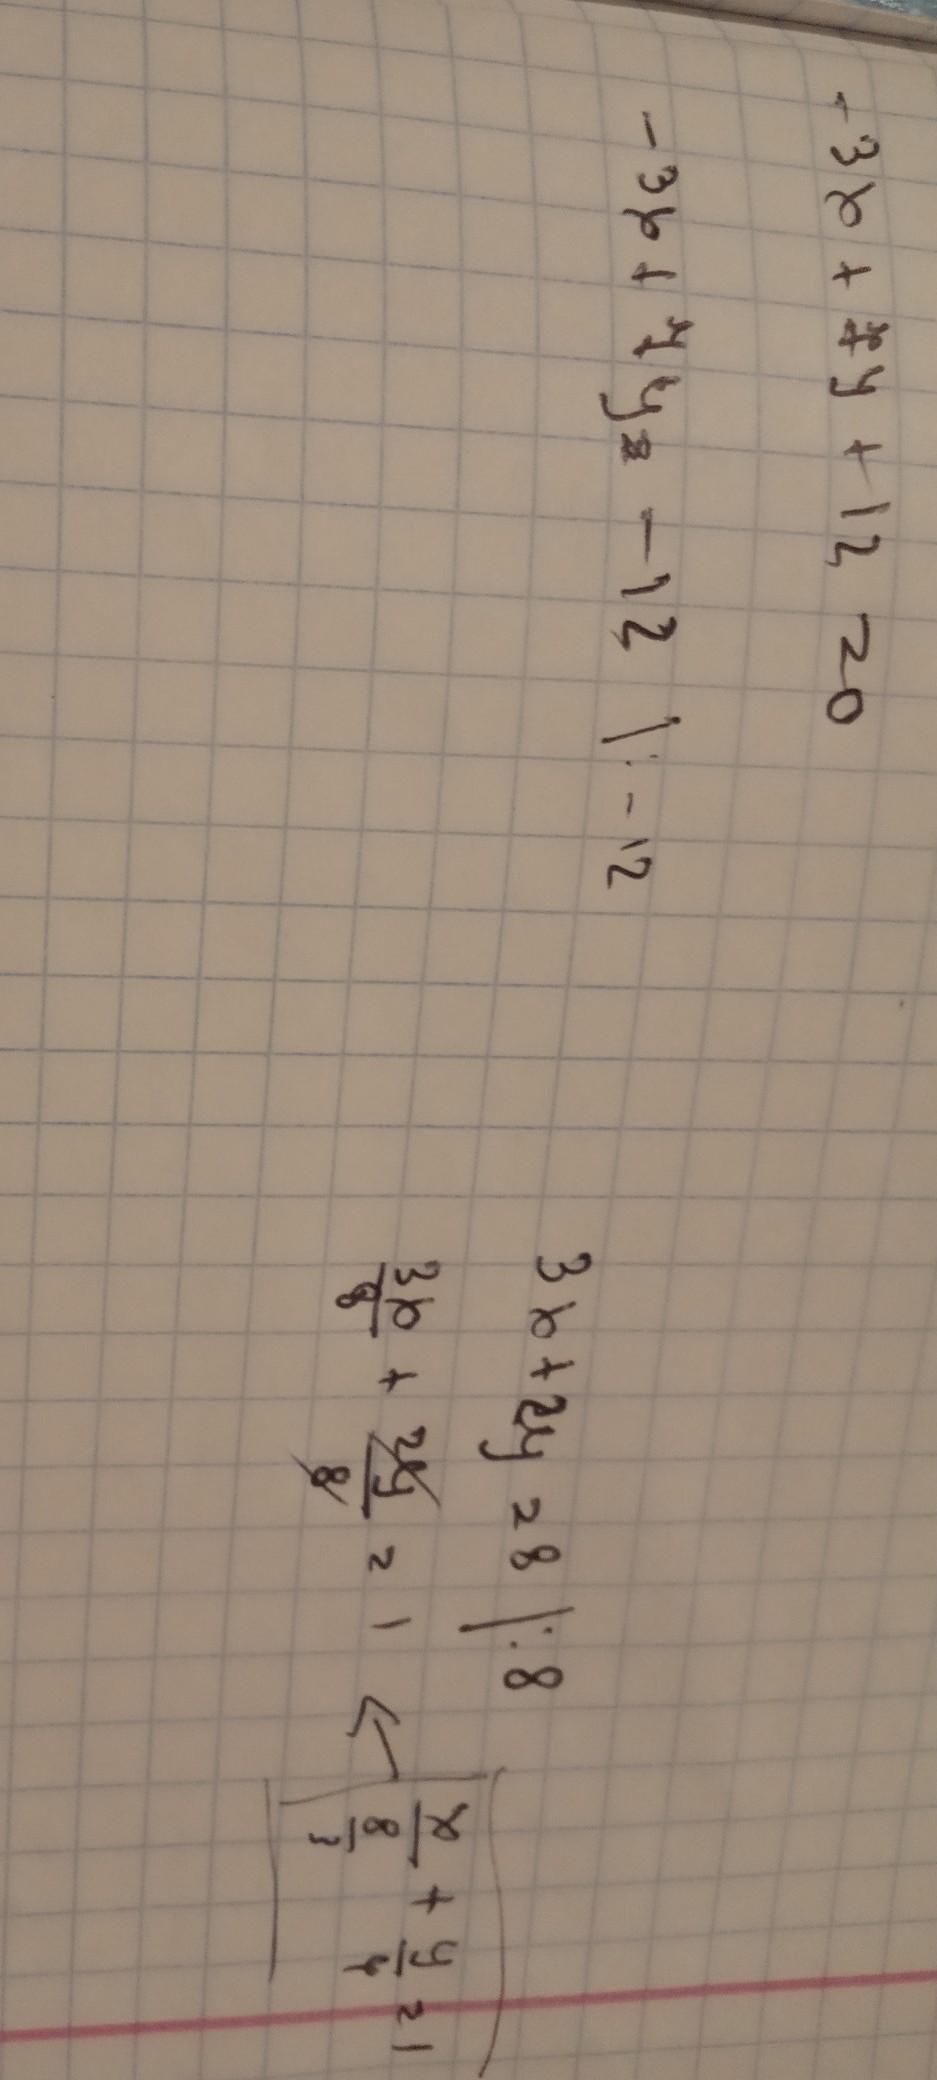 -3x + 7y + 12 = 0
-3x + 7y = -12 |: -12
3x + 2y = 8 |:8
3x/8 + 2y/8 = 1 ← x/(8/3) + y/4 = 1